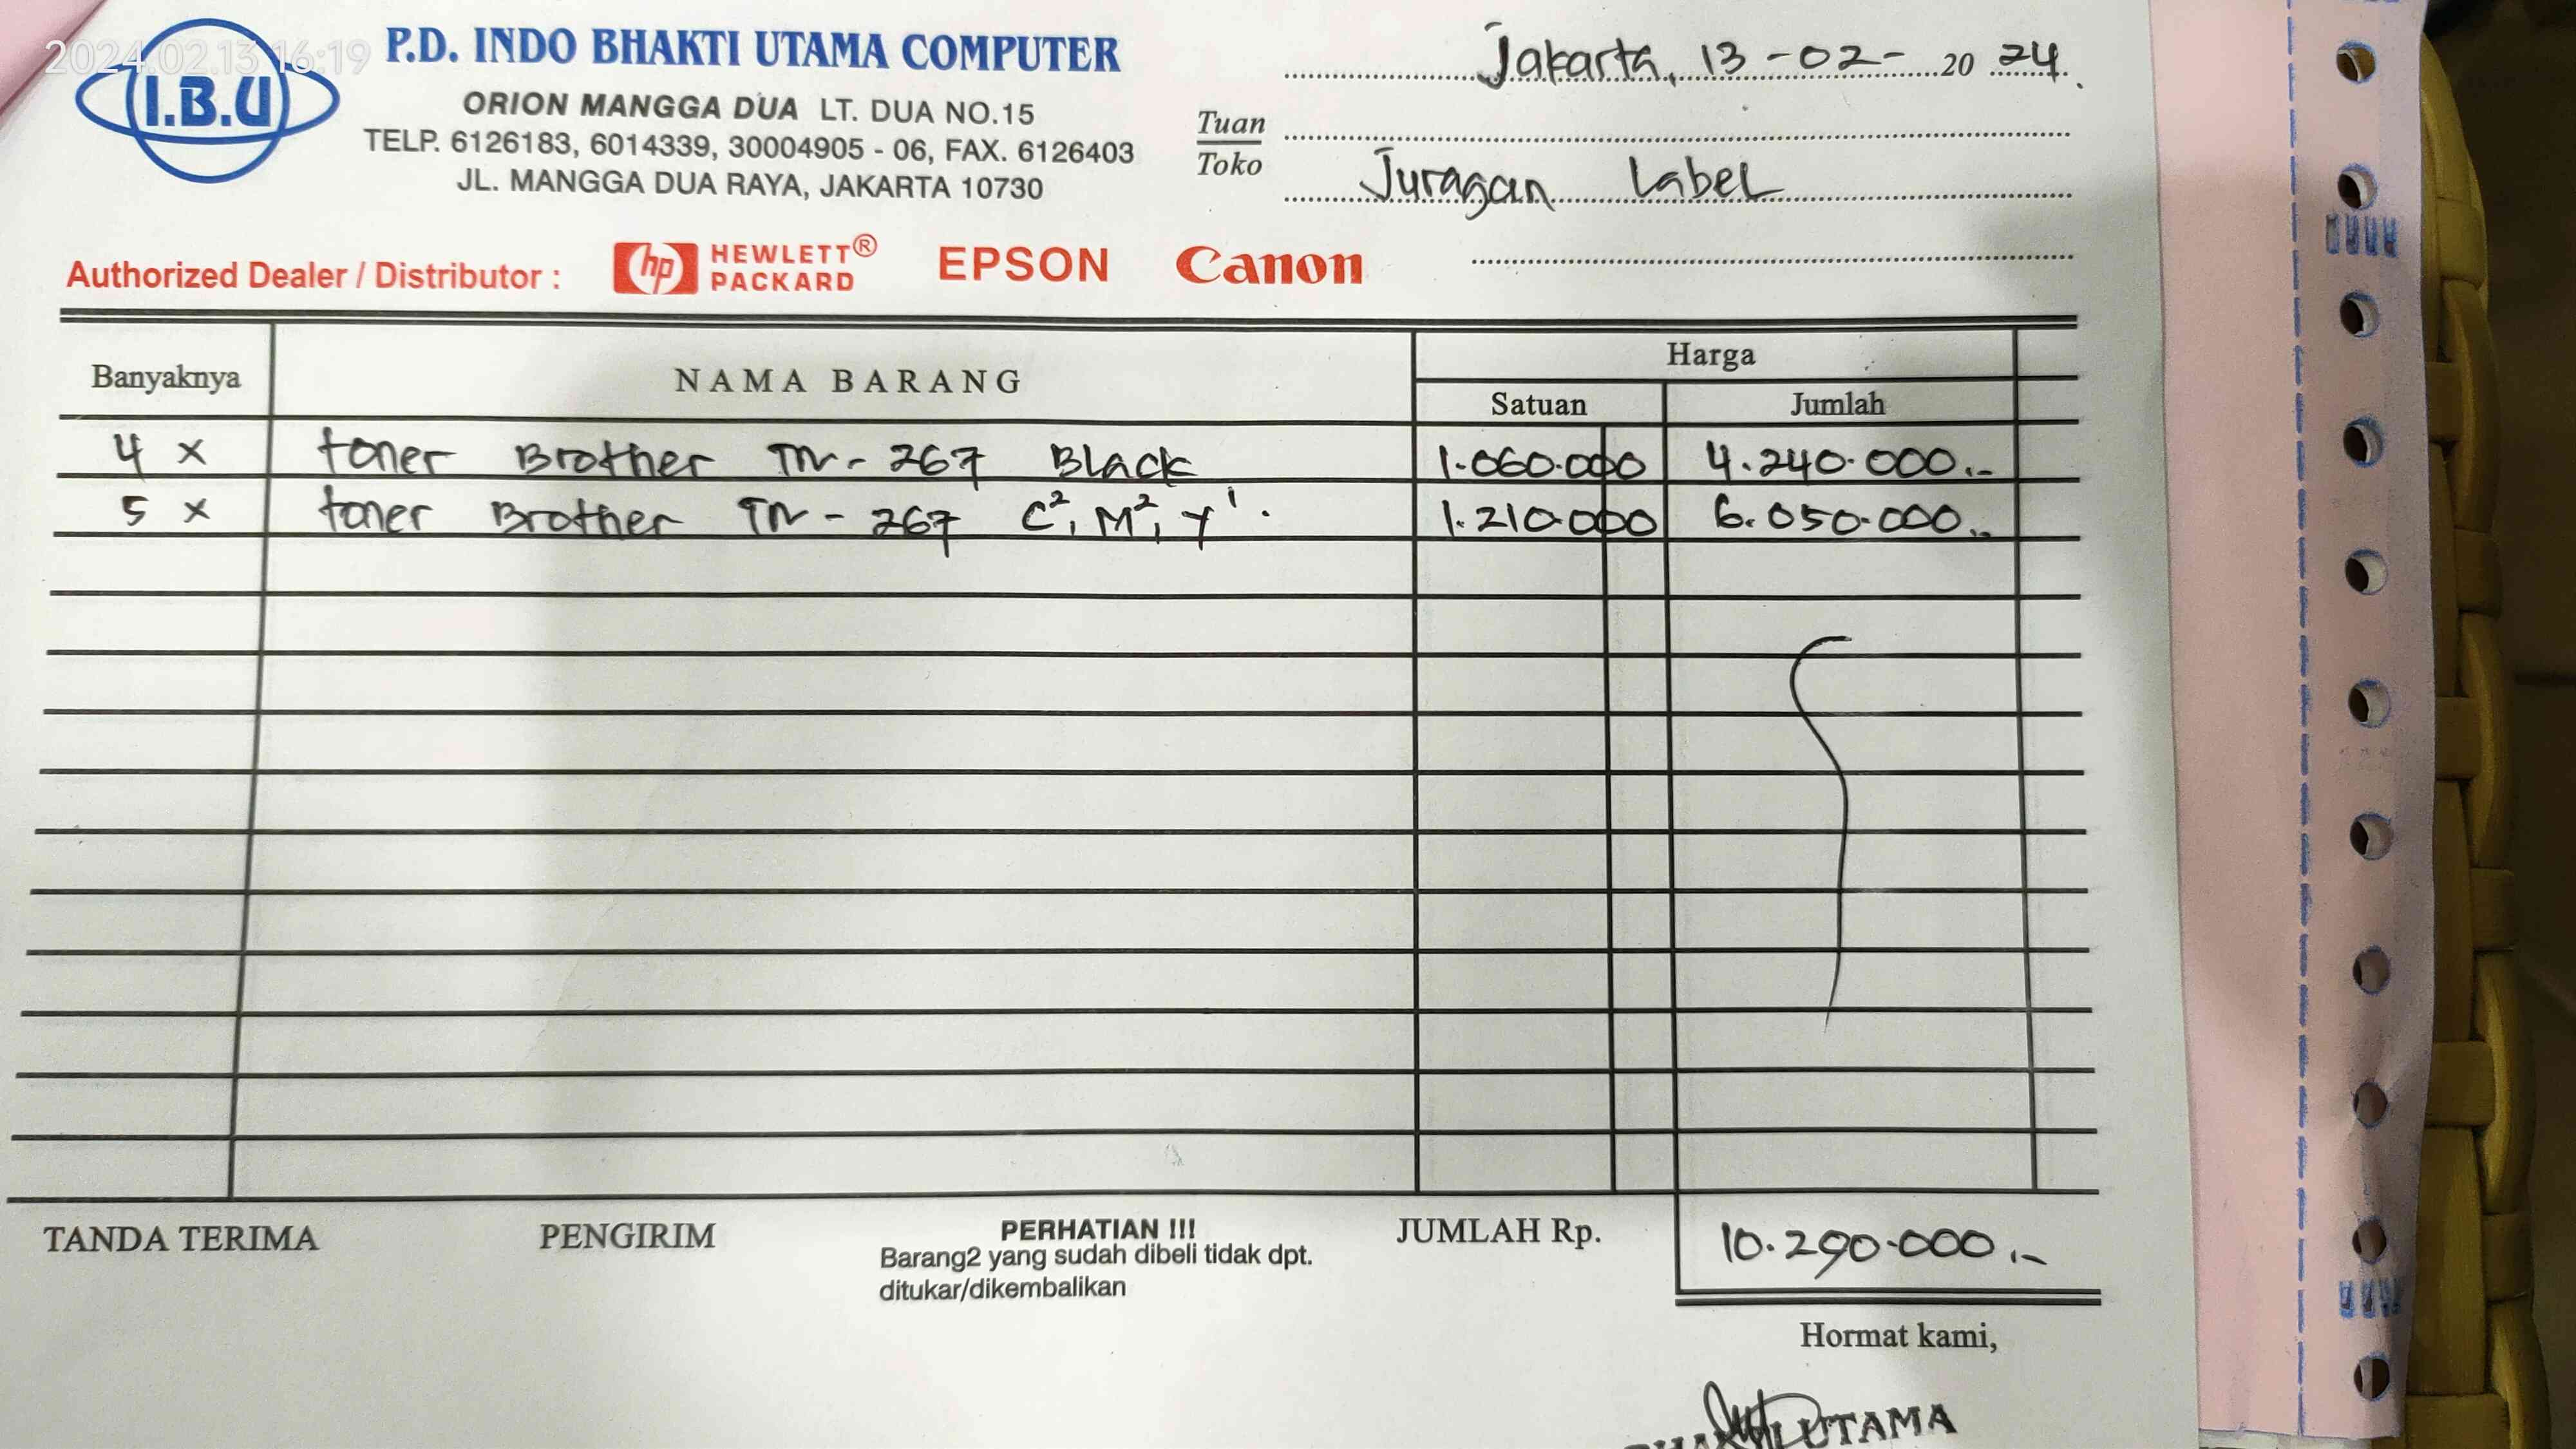 2024.02.13 16:19
I.B.U
P.D. INDO BHAKTI UTAMA COMPUTER
ORION MANGGA DUA LT. DUA NO.15
TELP. 6126183, 6014339, 30004905 - 06, FAX. 6126403
JL. MANGGA DUA RAYA, JAKARTA 10730
Jakarta, 13 - 02 - 20 24.
Tuan
Toko
Juragan Label
Authorized Dealer / Distributor : hp HEWLETT® PACKARD EPSON Canon
Banyaknya NAMA BARANG Harga
Satuan Jumlah
4 x toner Brother TN - 267 Black 1.060.000 4.240.000.-
5 x toner Brother TN - 267 C², M², Y¹. 1.210.000 6.050.000.-
TANDA TERIMA PENGIRIM PERHATIAN !!! JUMLAH Rp. 10.290.000.-
Barang2 yang sudah dibeli tidak dpt.
ditukar/dikembalikan
Hormat kami,
UTAMA